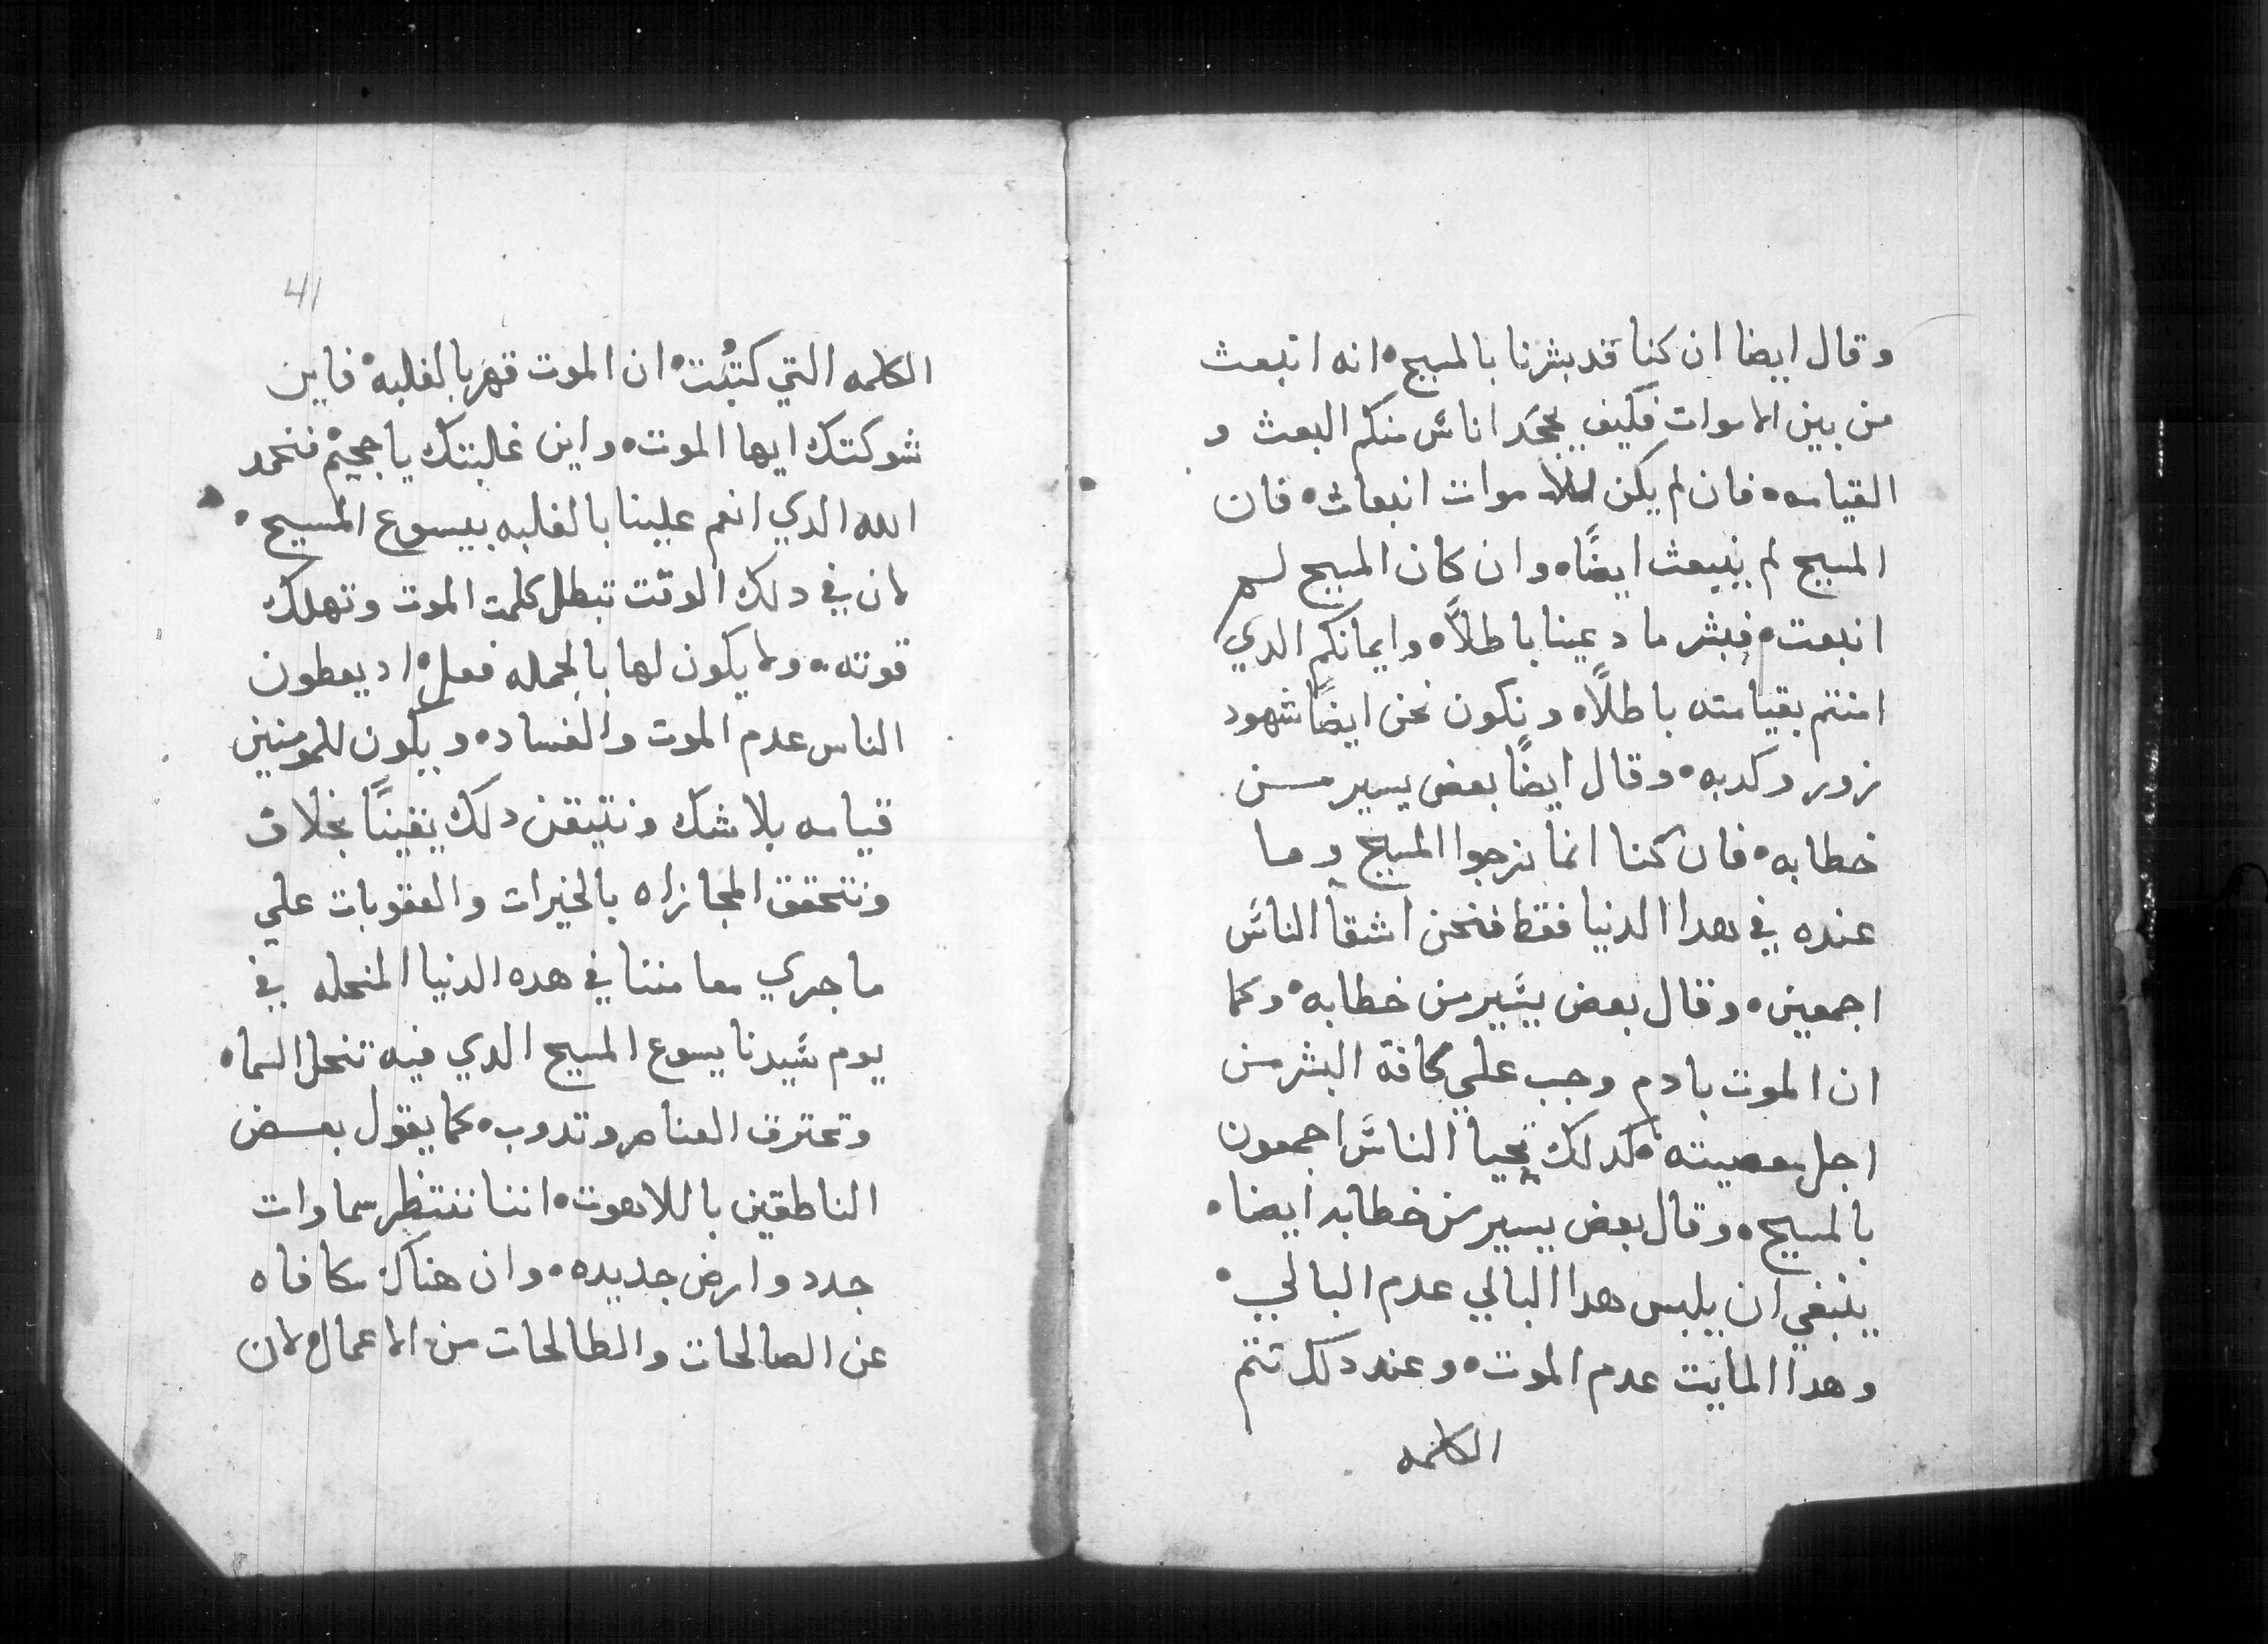 وقال ايضا ان كنا قد بشرنا بالمسيح انه انبعث
من بين الاموات فكيف يجحد اناس منكم البعث و
القيامه فان لم يكن للاموات انبعاث فان
المسيح لم ينبعث ايضًا وان كان المسيح لم
انبعث فبشر ما دعينا باطلاً وايمانكم الدي
امنتم بقيامته باطلاً ونكون نحن ايضًا شهود
زور وكدبه وقال ايضًا بعض يسير من
خطابه فان كنا انما نرجوا المسيح وما
عنده في هدا الدنيا فقط فنحن اشقا الناس
اجمعين وقال بعض يسير من خطابه وكما
ان الموت بادم وجب علي كافة البشر من
اجل معصيته كدلك تحيا الناس اجمعون
بالمسيح وقال بعض يسير من خطابه ايضا
ينبغي ان يلبس هدا البالي عدم البالي
وهدا المايت عدم الموت وعند دلك تتم
الكلمه
41
الكلمه التي كتبت ان الموت قهر بالغلبه فاين
شوكتك ايها الموت واين غالبتك يا جحيم فنحمد
الله الدي انعم علينا بالغلبه بيسوع المسيح
لان في دلك الوقت تبطل كلمت الموت وتهلك
قوته ولا يكون لها بالجمله فعل اد يعطون
الناس عدم الموت والفساد ويكون للمومنين
قيامه بلا شك ونتيقن دلك يقينًا بخلاف
ونتحقق المجازاه بالخيرات والعقوبات علي
ما جري معا مننا في هده الدنيا المنحله في
يوم سيدنا يسوع المسيح الدي فيه تنحل السما
وتحترق العناصر وتدوب كما يقول بعض
الناطقين باللاهوت اننا ننتظر سماوات
جدد وارض جديده وان هناك مكافاه
عن الصالحات والطالحات من الاعمال لان